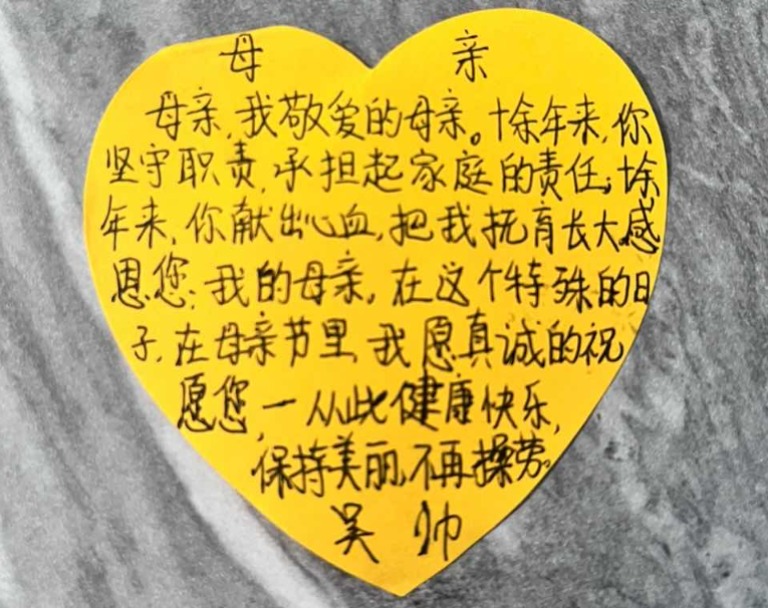 母 亲
母亲,我敬爱的母亲。十余年来,你
坚守职责,承担起家庭的责任;十余
年来,你献出心血,把我抚育长大。感
恩您:我的母亲,在这个特殊的日
子,在母亲节里,我愿真诚的祝
愿您,一从此健康快乐,
保持美丽,不再操劳。
吴 帅